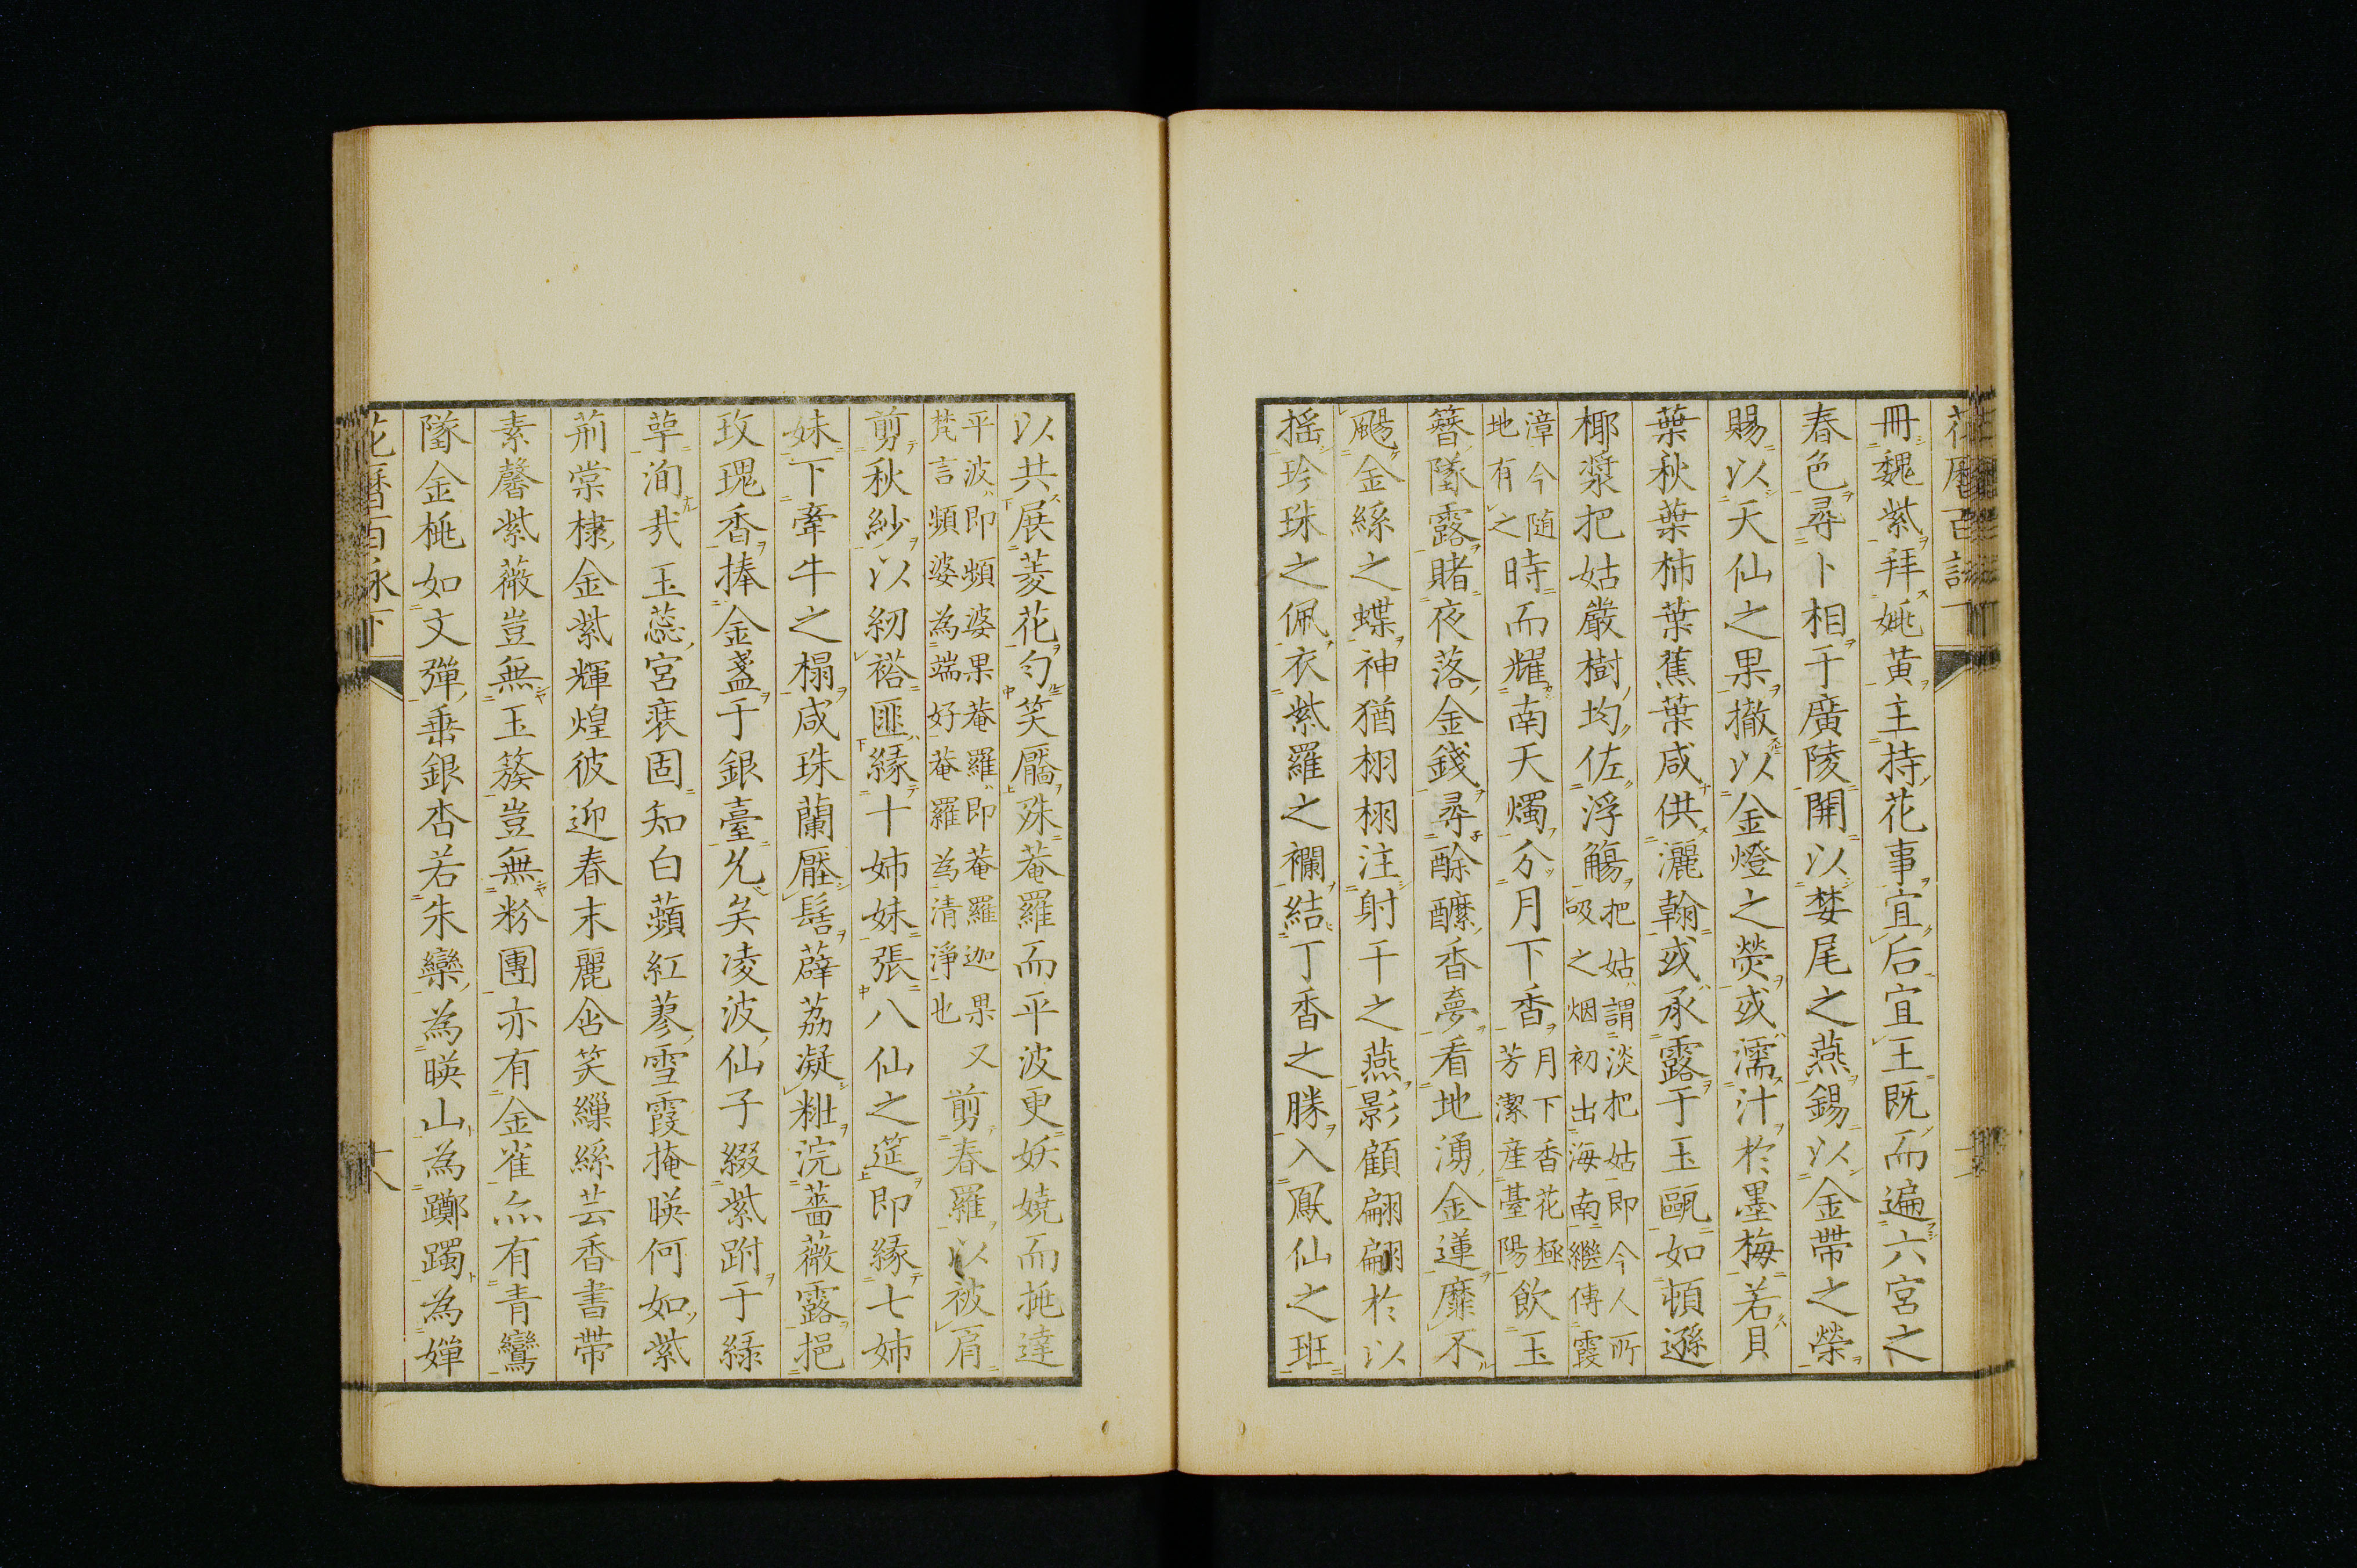 冊魏紫拜姚黄主持花事宜后宜王既而遍六宮之
春色尋卜相于廣陵開以婪尾之燕錫以金帶之榮
賜以天仙之果撤以金燈之熒或濡汁於墨梅若貝
葉秋葉柿葉蕉葉咸供灑翰或承露于玉甌如頓遜
椰漿把姑嚴樹均佐浮觴把姑謂淡把姑即今人所
吸之烟初出海南繼傳霞
漳今随
地有之時而耀南天燭分月下香月下香花極
芳潔産臺陽飲玉
簪墜露賭夜落金錢尋酴醾香夢看地湧金蓮靡不
颺金絲之蝶神猶栩栩注射干之燕影顧翩翩於以
揺珍珠之佩衣紫羅之襴結丁香之勝入鳳仙之班
以共展菱花匀笑靨殊菴羅而平波更妖嬈而挑達
平波即頻婆果菴羅即菴羅迦果又
梵言頻婆為端好菴羅為清淨也
剪春羅以被肩
剪秋紗以紉褡匪緣十姉妹張八仙之筵即緣七姉
妹下牽牛之榻咸珠蘭壓髻薜荔凝粧浣薔薇露挹
玫瑰香捧金盞于銀臺允矣凌波仙子綴紫跗于緑
萼洵哉玉蕊宮裵固知白蘋紅蓼雪霞掩暎何如紫
荊棠棣金紫輝煌彼迎春末麗含笑繅絲芸香書帶
素馨紫薇豈無玉簇豈無粉團亦有金雀亦有青鸞
墜金桃如文彈垂銀杏若朱欒為暎山為躑躅為嬋
花曆百詠下
十八